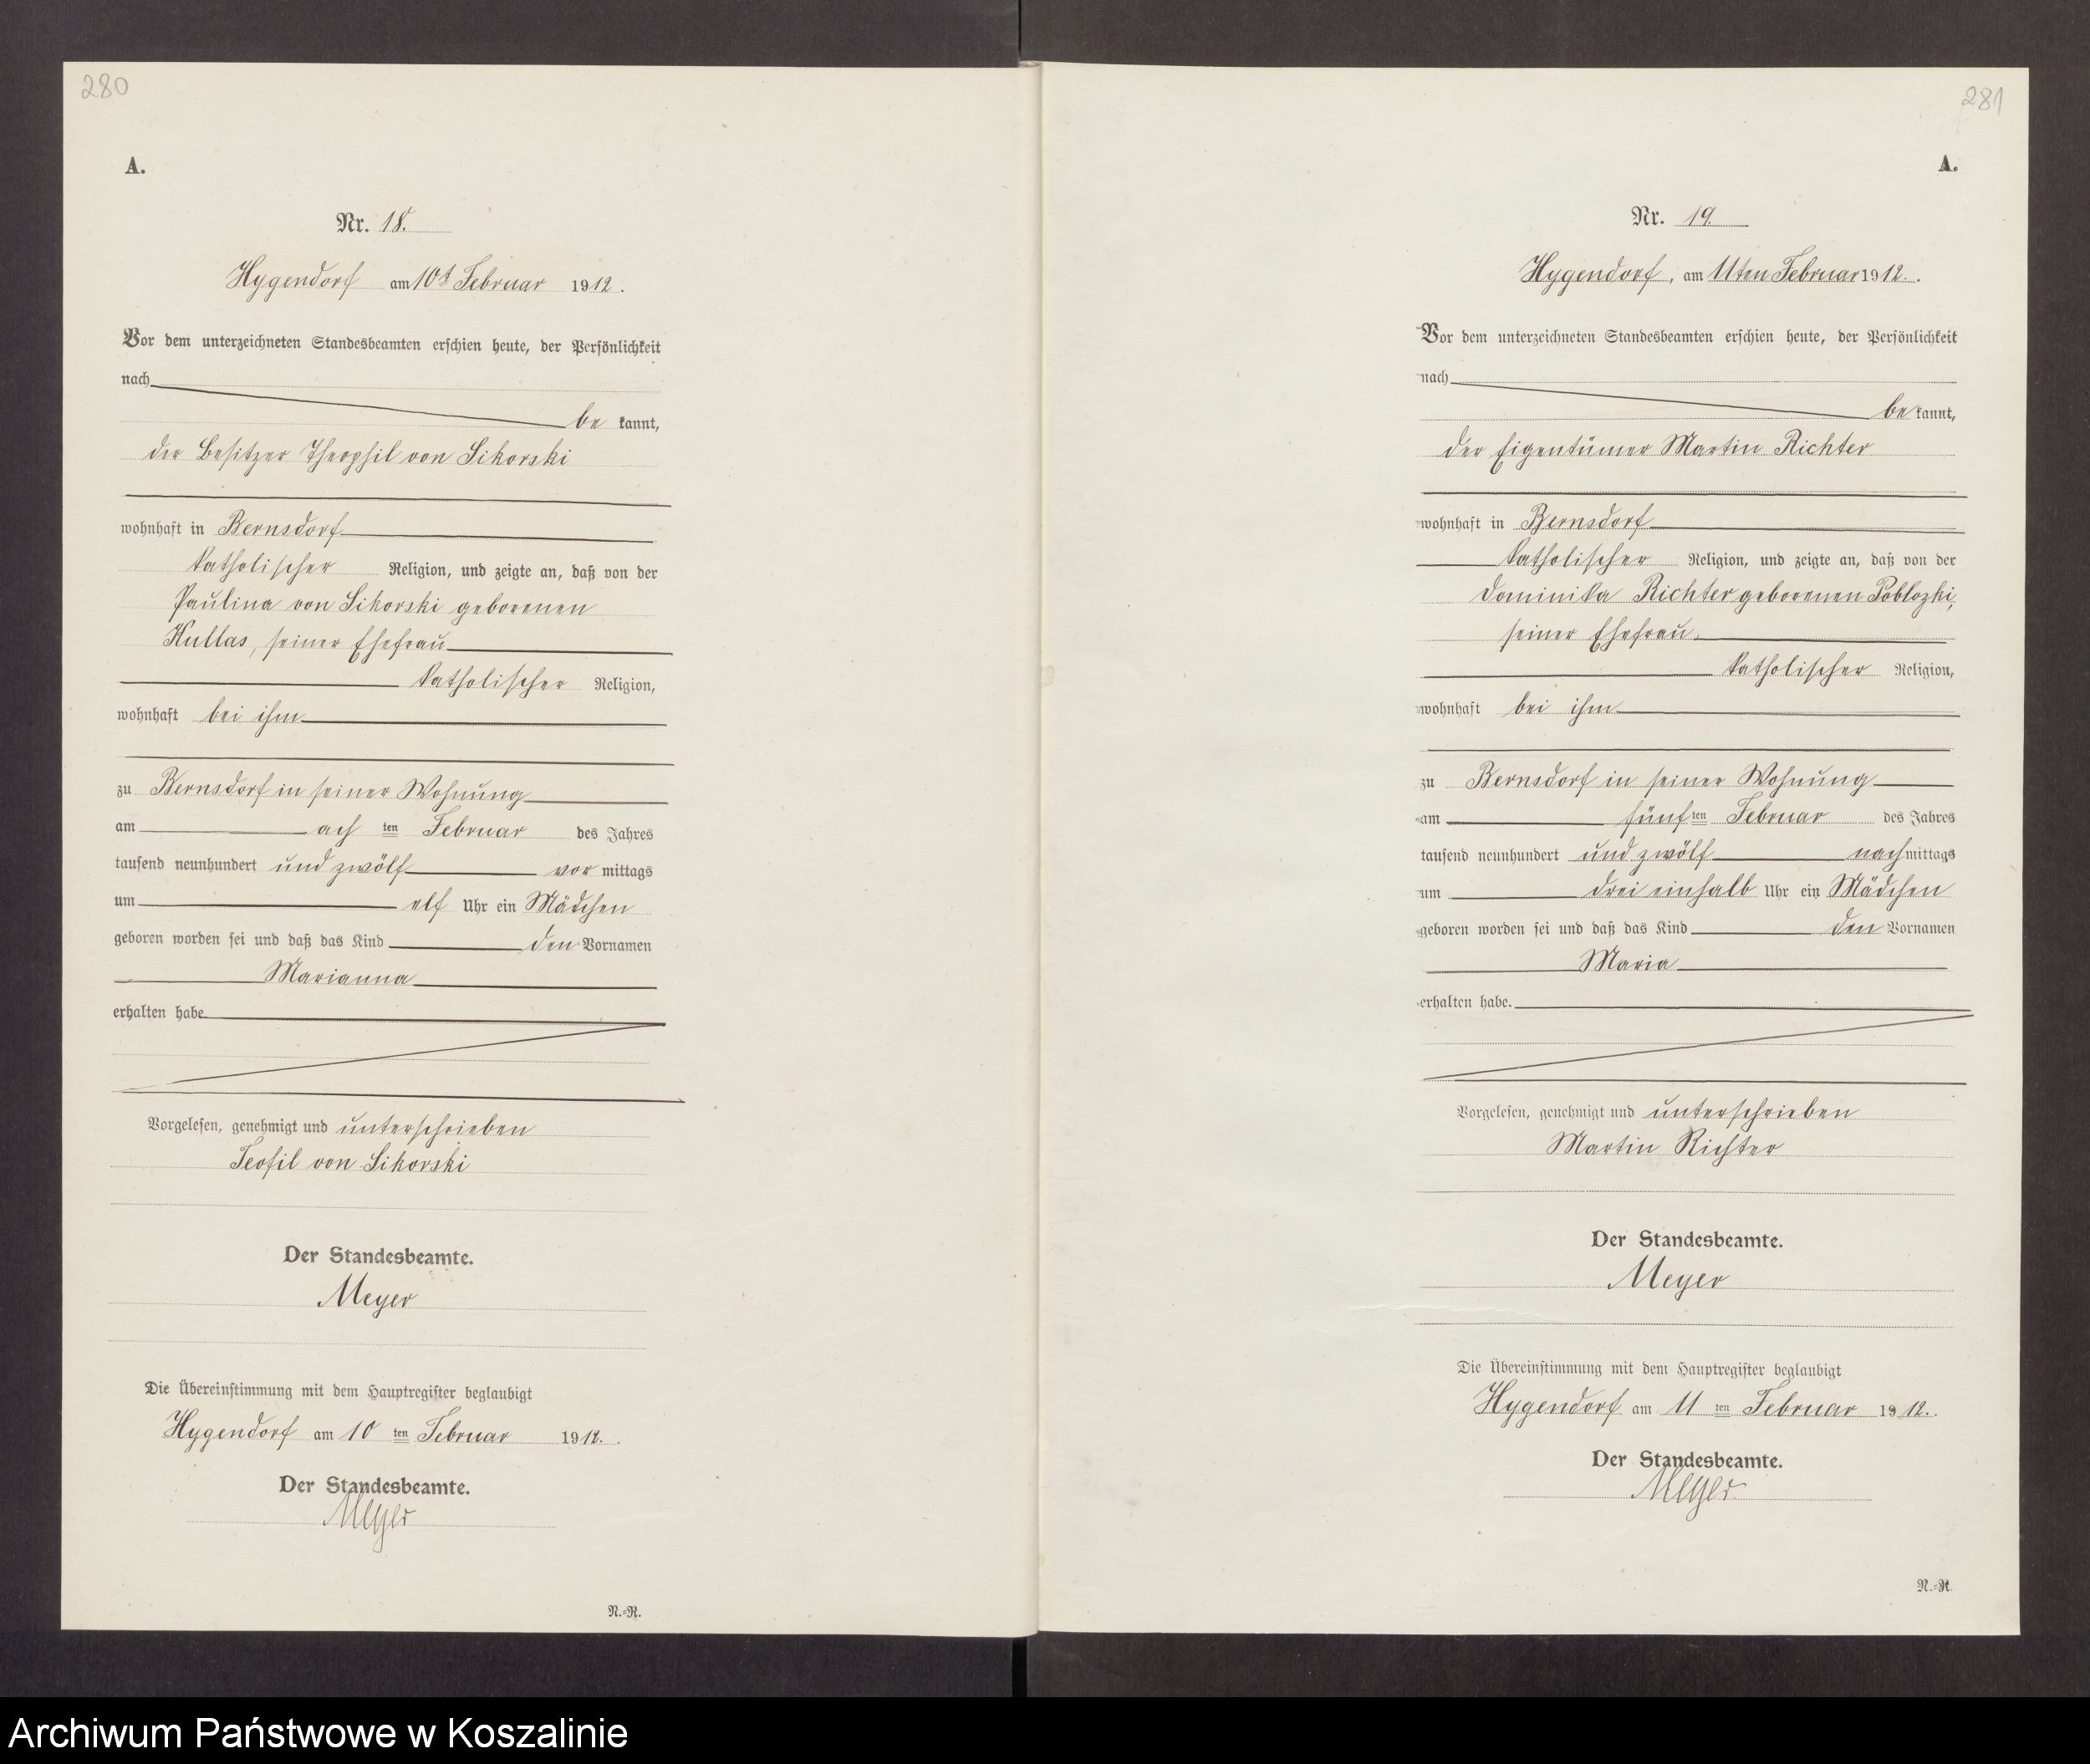 280
A.
Nr. 18.
Hygendorf am 10t Februar 1912.
Vor dem unterzeichneten Standesbeamten erschien heute, der Persönlichkeit
nach
be kannt,
der Besitzer Theophil von Sikorski
wohnhaft in Bernsdorf
katholischer Religion, und zeigte an, daß von der
Paulina von Sikorski geborenen
Kullas, seiner Ehefrau
katholischer Religion,
wohnhaft bei ihm
zu Bernsdorf in seiner Wohnung
am ach ten Februar des Jahres
tausend neunhundert und zwölf vor mittags
um elf Uhr ein Mädchen
geboren worden sei und daß das Kind den Vornamen
Marianna
erhalten habe
Vorgelesen, genehmigt und unterschrieben
Teofil von Sikorski
Der Standesbeamte.
Meyer
Die Übereinstimmung mit dem Hauptregister beglaubigt
Hygendorf am 10 ten Februar 1912.
Der Standesbeamte.
Meyer
N.-R.
281
A.
Nr. 19.
Hygendorf, am 11ten Februar 1912.
Vor dem unterzeichneten Standesbeamten erschien heute, der Persönlichkeit
nach
be kannt,
der Eigentümer Martin Richter
wohnhaft in Bernsdorf
katholischer Religion, und zeigte an, daß von der
Dominika Richter geborenen Poblozki,
seiner Ehefrau,
katholischer Religion,
wohnhaft bei ihm
zu Bernsdorf in seiner Wohnung
am fünf ten Februar des Jahres
tausend neunhundert und zwölf nach mittags
um drei einhalb Uhr ein Mädchen
geboren worden sei und daß das Kind den Vornamen
Maria
erhalten habe.
Vorgelesen, genehmigt und unterschrieben
Martin Richter
Der Standesbeamte.
Meyer
Die Übereinstimmung mit dem Hauptregister beglaubigt
Hygendorf am 11 ten Februar 1912.
Der Standesbeamte.
Meyer
N.-R.
Archiwum Państwowe w Koszalinie